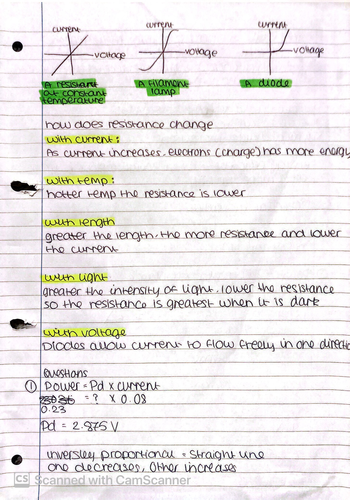 current current current
voltage voltage voltage
A resistant A filament A diode
at constant lamp
temperature
how does resistance change
with current:
As current increases. electrons (charge) has more energy
with temp:
hotter temp the resistance is lower
with length
greater the length, the more resistance and lower
the current
with light
greater the intensity of light, lower the resistance
so the resistance is greatest when it is dark
with voltage
Diodes allow current to flow freely in one directi
Questions
① Power = Pd x current
= ? x 0.08
0.23
Pd = 2.875 V
inversley proportional = straight line
one decreases, other increases
CS Scanned with CamScanner